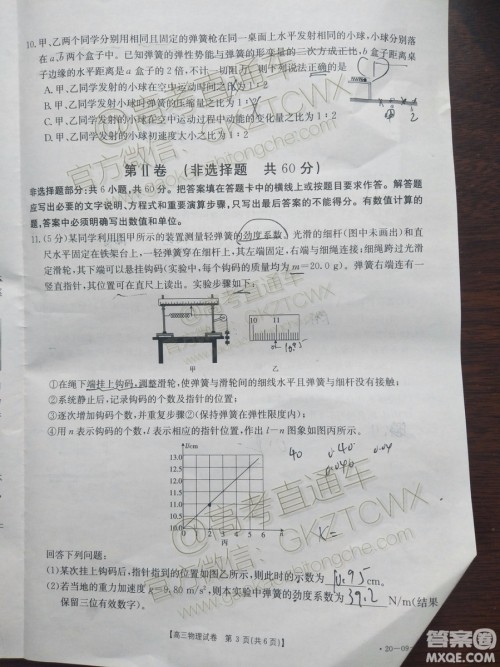 10. 甲、乙两个同学分别用相同且固定的弹簧枪在同一桌面上水平发射相同的小球,小球分别落
在a、b两个盒子中。已知弹簧的弹性势能与弹簧的形变量的二次方成正比,b盒子距离桌
子边缘的水平距离是a盒子的2倍,不计一切阻力,则下列说法正确的是
A. 甲、乙同学发射的小球在空中运动时间之比为1:2
B. 甲、乙同学发射小球时弹簧的压缩量之比为1:2
C. 甲、乙同学发射的小球在空中运动过程中动能的变化量之比为1:2
D. 甲、乙同学发射的小球初速度大小之比为1:2
第Ⅱ卷 (非选择题 共60分)
非选择题部分:共6小题,共60分。把答案填在答题卡中的横线上或按题目要求作答。解答题
应写出必要的文字说明,方程式和重要演算步骤,只写出最后答案的不能得分。有数值计算的
题,答案中必须明确写出数值和单位。
11. (5分)某同学利用图甲所示的装置测量轻弹簧的劲度系数,光滑的细杆(图中未画出)和直
尺水平固定在铁架台上,一轻弹簧穿在细杆上,其左端固定,右端与细绳连接;细绳跨过光滑
定滑轮,其下端可以悬挂钩码(实验中,每个钩码的质量均为m=20.0 g)。弹簧右端连有一
竖直指针,其位置可在直尺上读出。实验步骤如下:
10 11
10.95
甲 乙
①在绳下端挂上钩码,调整滑轮,使弹簧与滑轮间的细线水平且弹簧与细杆没有接触;
②系统静止后,记录钩码的个数及指针的位置;
③逐次增加钩码个数,并重复步骤②(保持弹簧在弹性限度内);
④用n表示钩码的个数,l表示相应的指针位置,作出l-n图象如图丙所示。
l/cm
13.0
12.5
12.0
11.5
11.0
10.5
10.0
0 1 2 3 4 5 6 n
丙
40 0.40
0.04
k=
回答下列问题:
(1)某次挂上钩码后,指针指到的位置如图乙所示,则此时的示数为 10.95 cm。
(2)若当地的重力加速度g=9.80 m/s²,则本实验中弹簧的劲度系数为 39.2 N/m(结果
保留三位有效数字)。
【高三物理试卷 第3页(共6页)】
·20-09
@高考直通车
官方微信:GKZTCWX
官方网站:gaokaozhitongche.com
@高考直通车
官方微信:GKZTCWX
答案圈
MXQE.COM